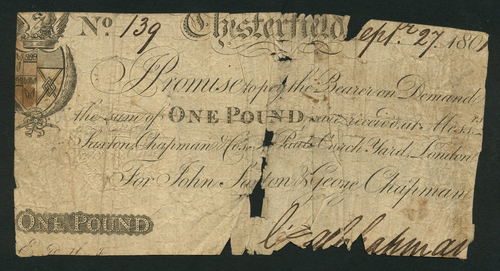 No. 139 Chesterfield Sept. 27. 180
I Promise to pay the Bearer on Demand
the sum of ONE POUND value received at Mess.rs
Chapman & Co. St. Pauls Church Yard, London
For John & George Chapman
ONE POUND
Geo. Chapman